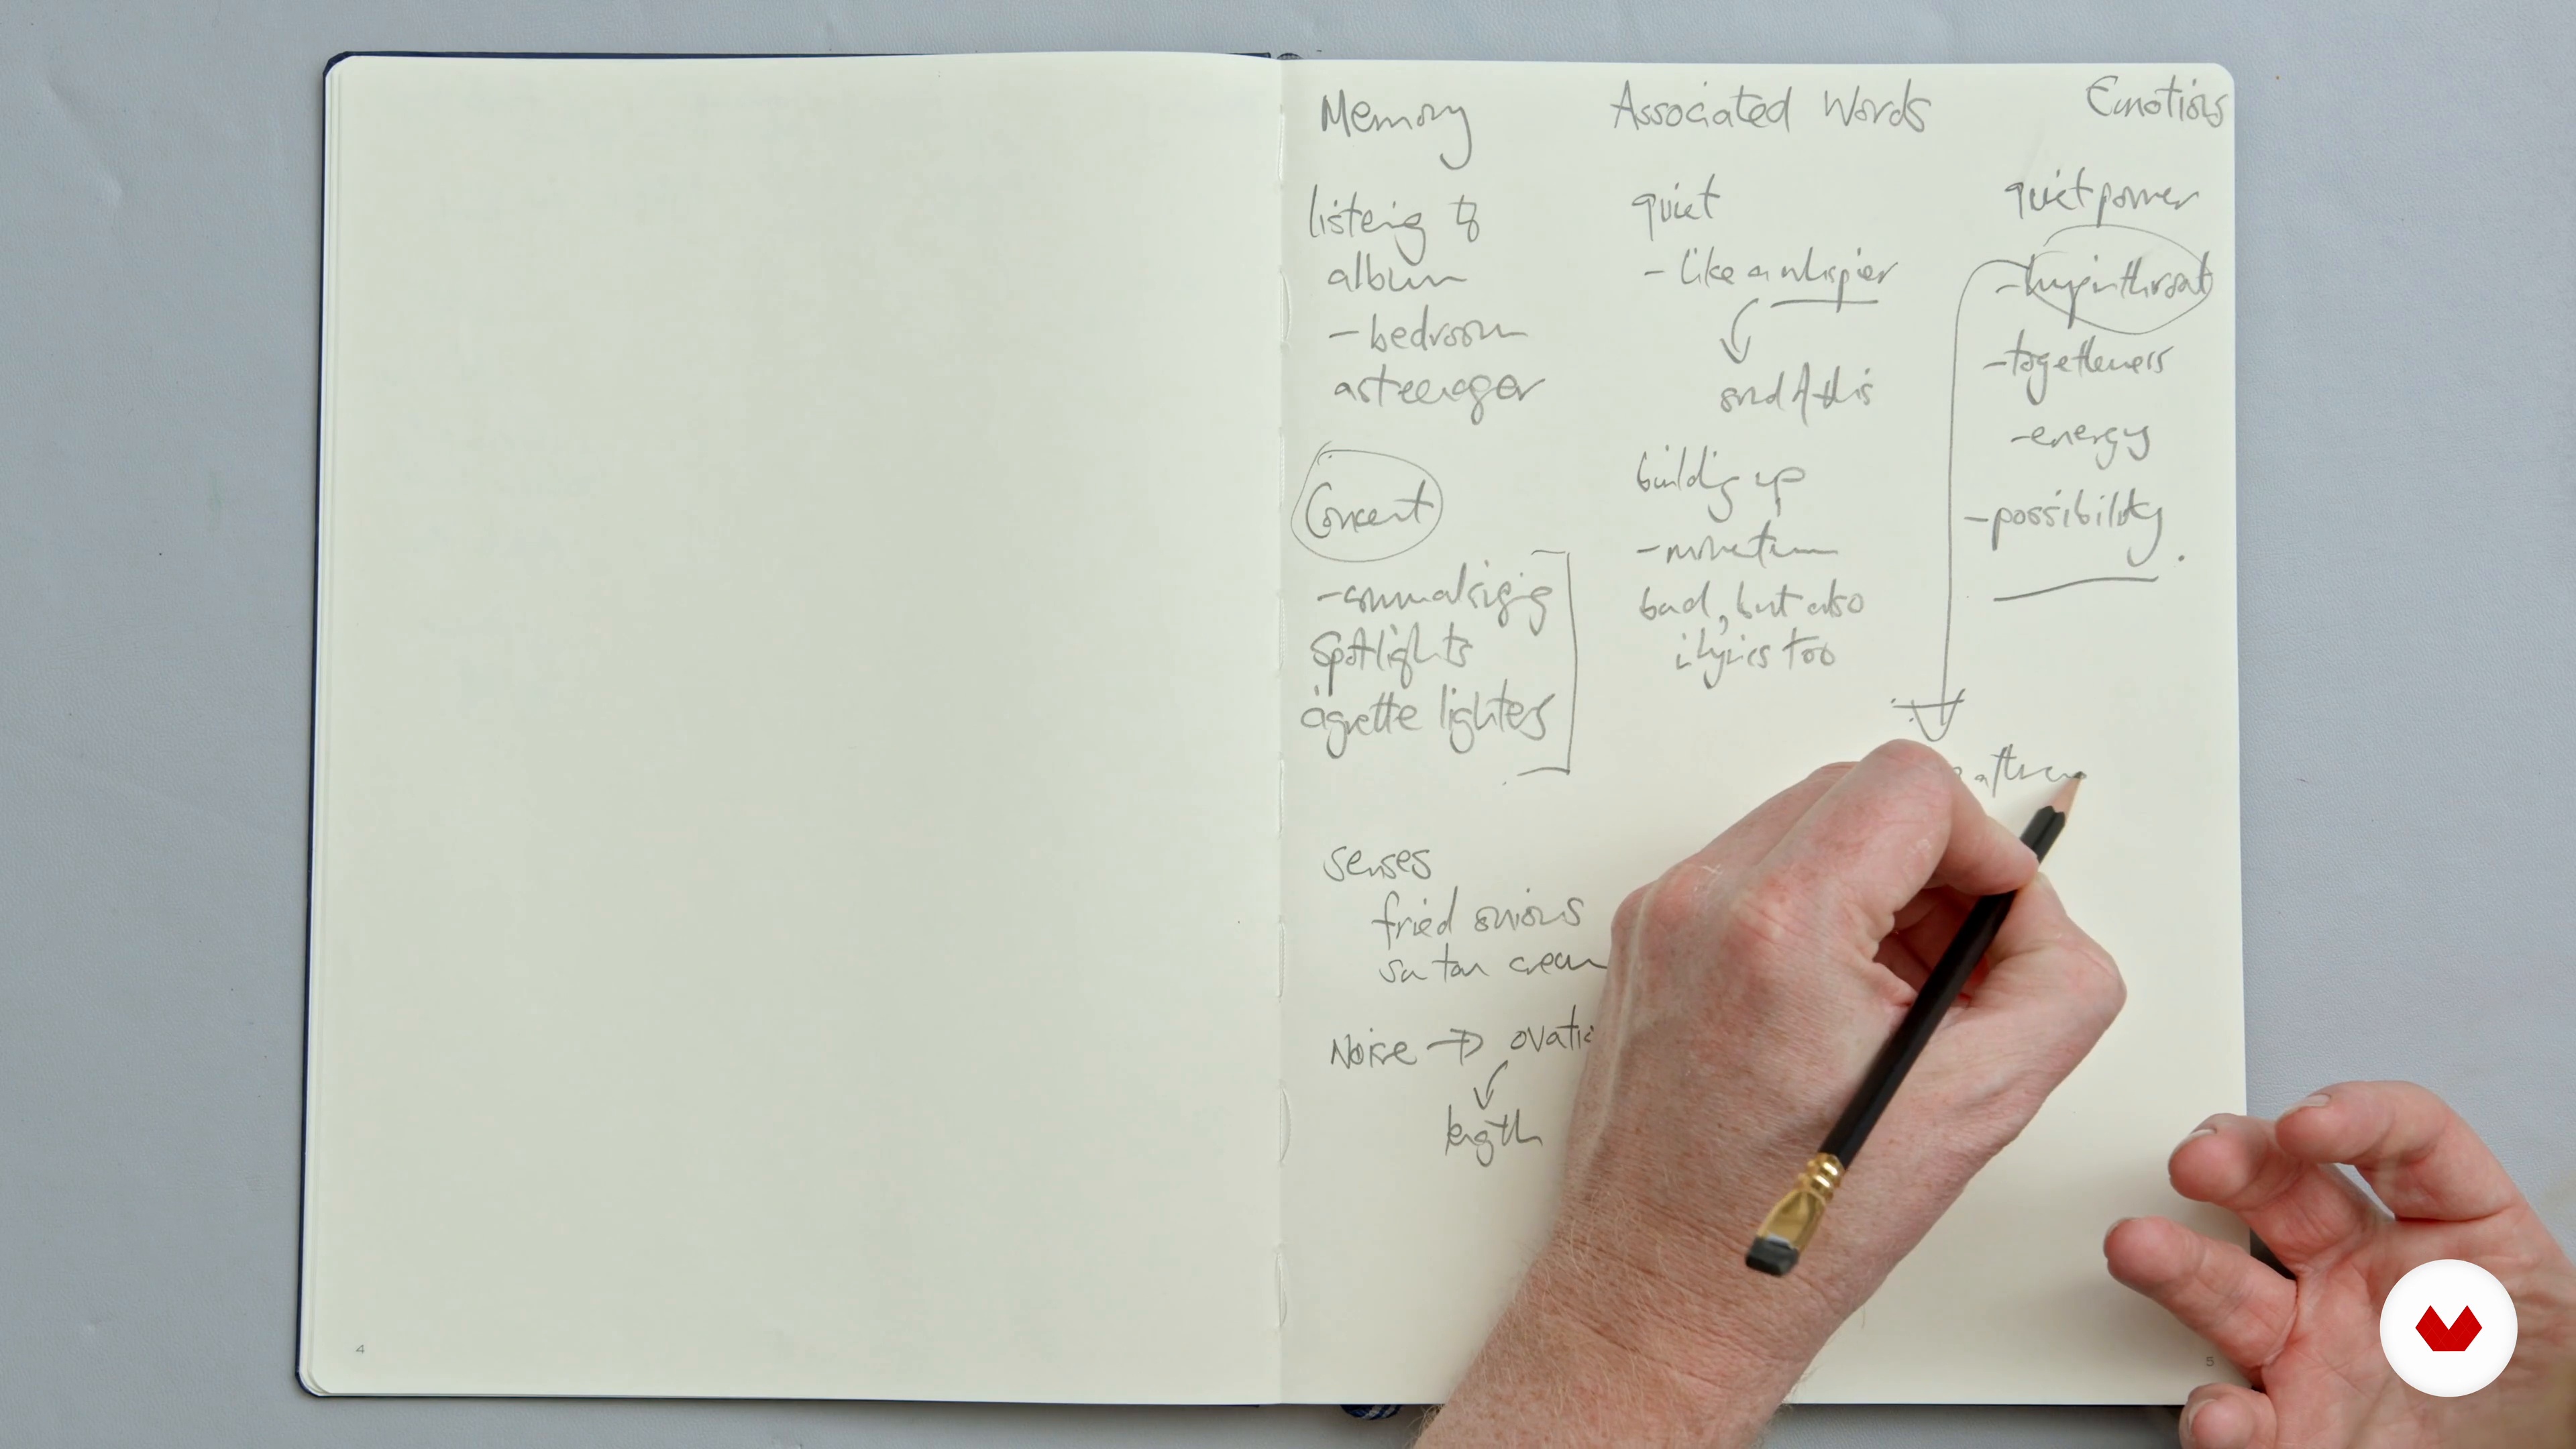 Memory
listening to
album
- bedroom
as teenager
Concert
- communal singing
Spotlights
cigarette lighters
senses
fried onions
sun tan cream
Noise → ovatio
length
Associated Words
quiet
- like a whisper
sound of this
building up
- momentum
bad, but also
in lyrics too
Emotions
quiet power
- lump in throat
- togetherness
- energy
- possibility.
4
5